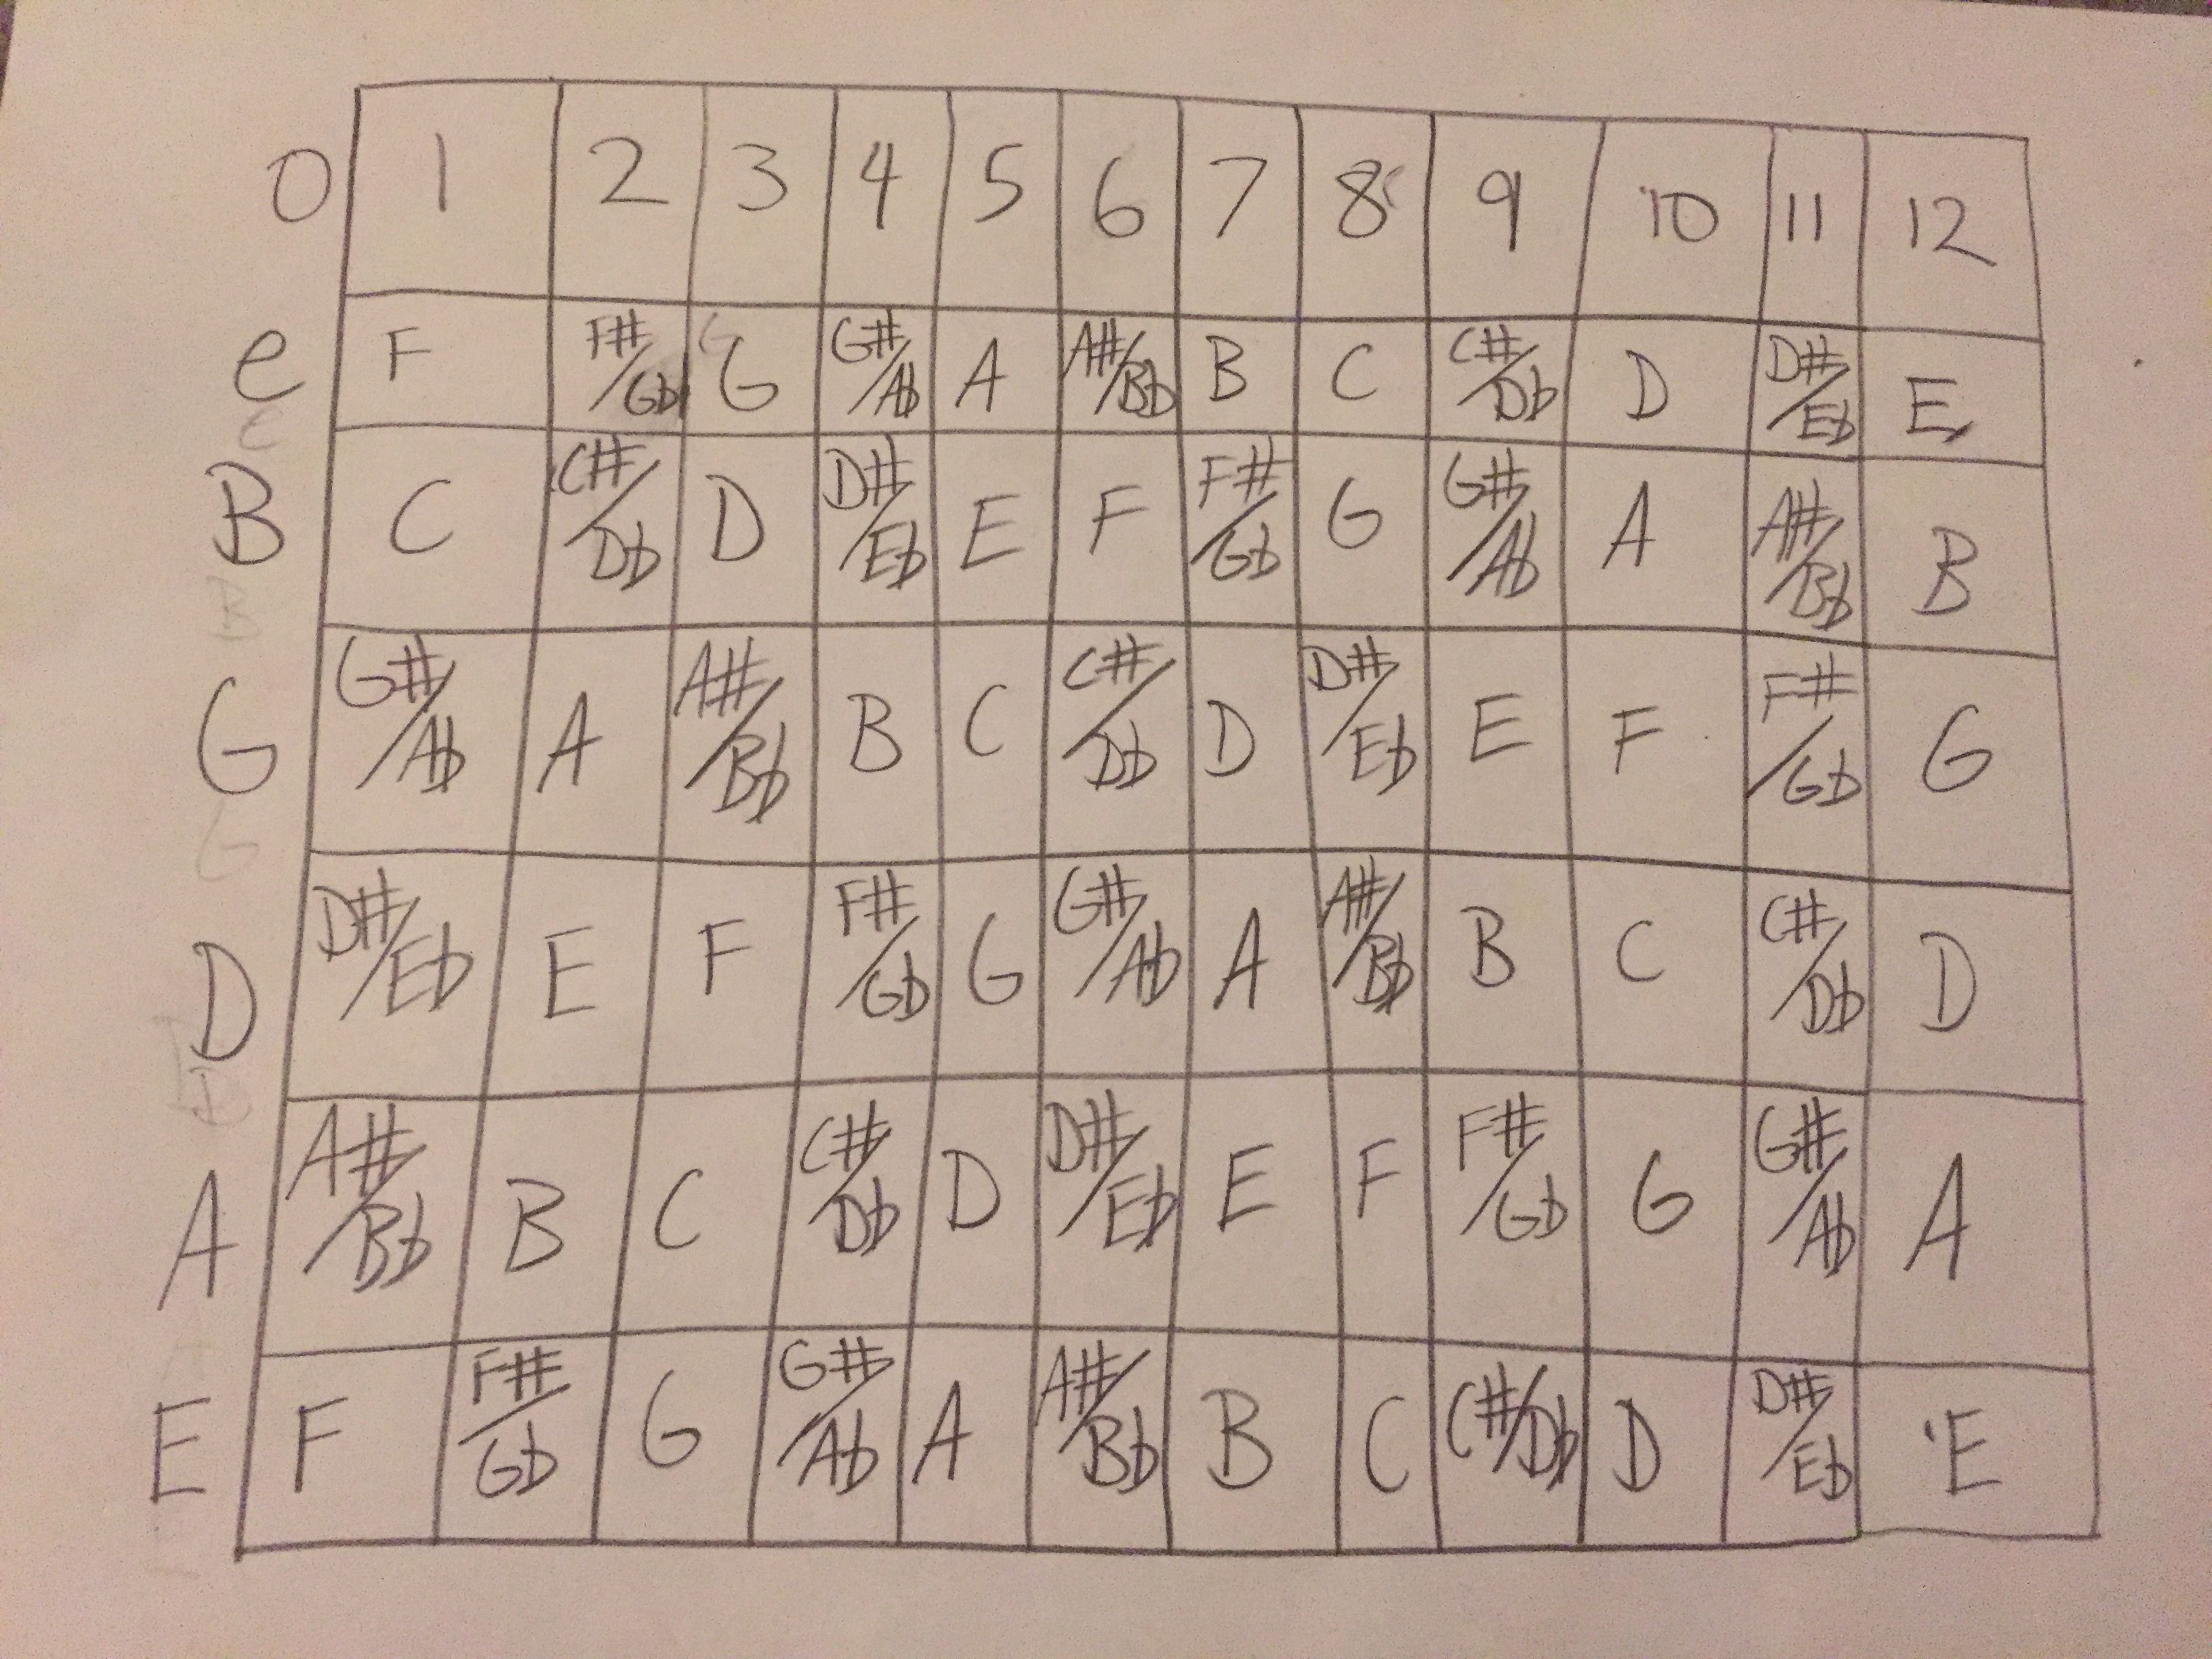 0 1 2 3 4 5 6 7 8 9 10 11 12
e F F#/Gb G G#/Ab A A#/Bb B C C#/Db D D#/Eb E
B C C#/Db D D#/Eb E F F#/Gb G G#/Ab A A#/Bb B
G G#/Ab A A#/Bb B C C#/Db D D#/Eb E F F#/Gb G
D D#/Eb E F F#/Gb G G#/Ab A A#/Bb B C C#/Db D
A A#/Bb B C C#/Db D D#/Eb E F F#/Gb G G#/Ab A
E F F#/Gb G G#/Ab A A#/Bb B C C#/Db D D#/Eb E